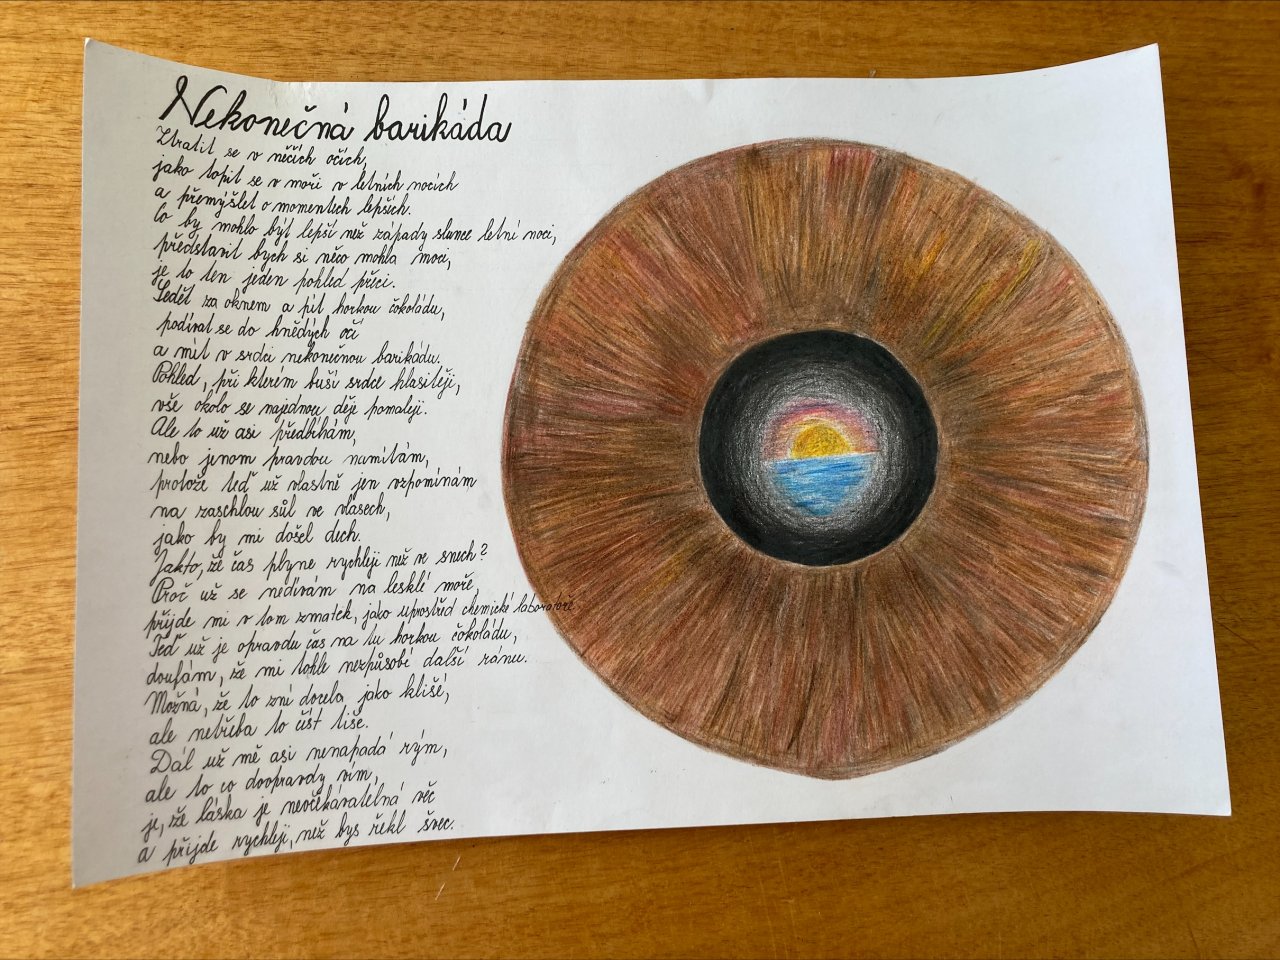 Nekonečná barikáda
Ztratit se v něčích očích,
jako topit se v moři v letních nocích
a přemýšlet o momentech lepších.
Co by mohlo být lepší než západy slunce letní noci,
představit bych si něco mohla moci,
je to ten jeden pohled přeci.
Sedět za oknem a pít horkou čokoládu,
podívat se do hnědých očí
a mít v srdci nekonečnou barikádu.
Pohled, při kterém buší srdce hlasitěji,
vše okolo se najednou děje pomaleji.
Ale to už asi předbíhám,
nebo jenom pravdou namítám,
protože teď už vlastně jen vzpomínám
na zaschlou sůl ve vlasech,
jako by mi došel dech.
Jakto, že čas plyne rychleji než ve snech?
Proč už se nedívám na lesklé moře,
přijde mi v tom zmatek, jako uprostřed chemické laboratoře.
Teď už je opravdu čas na tu horkou čokoládu,
doufám, že mi tohle nezpůsobí další ránu.
Možná, že to zní docela jako klišé,
ale netřeba to číst tiše.
Dál už mě asi nenapadá rým,
ale to co doopravdy vím,
je, že láska je neočekávatelná věc
a přijde rychleji, než bys řekl švec.